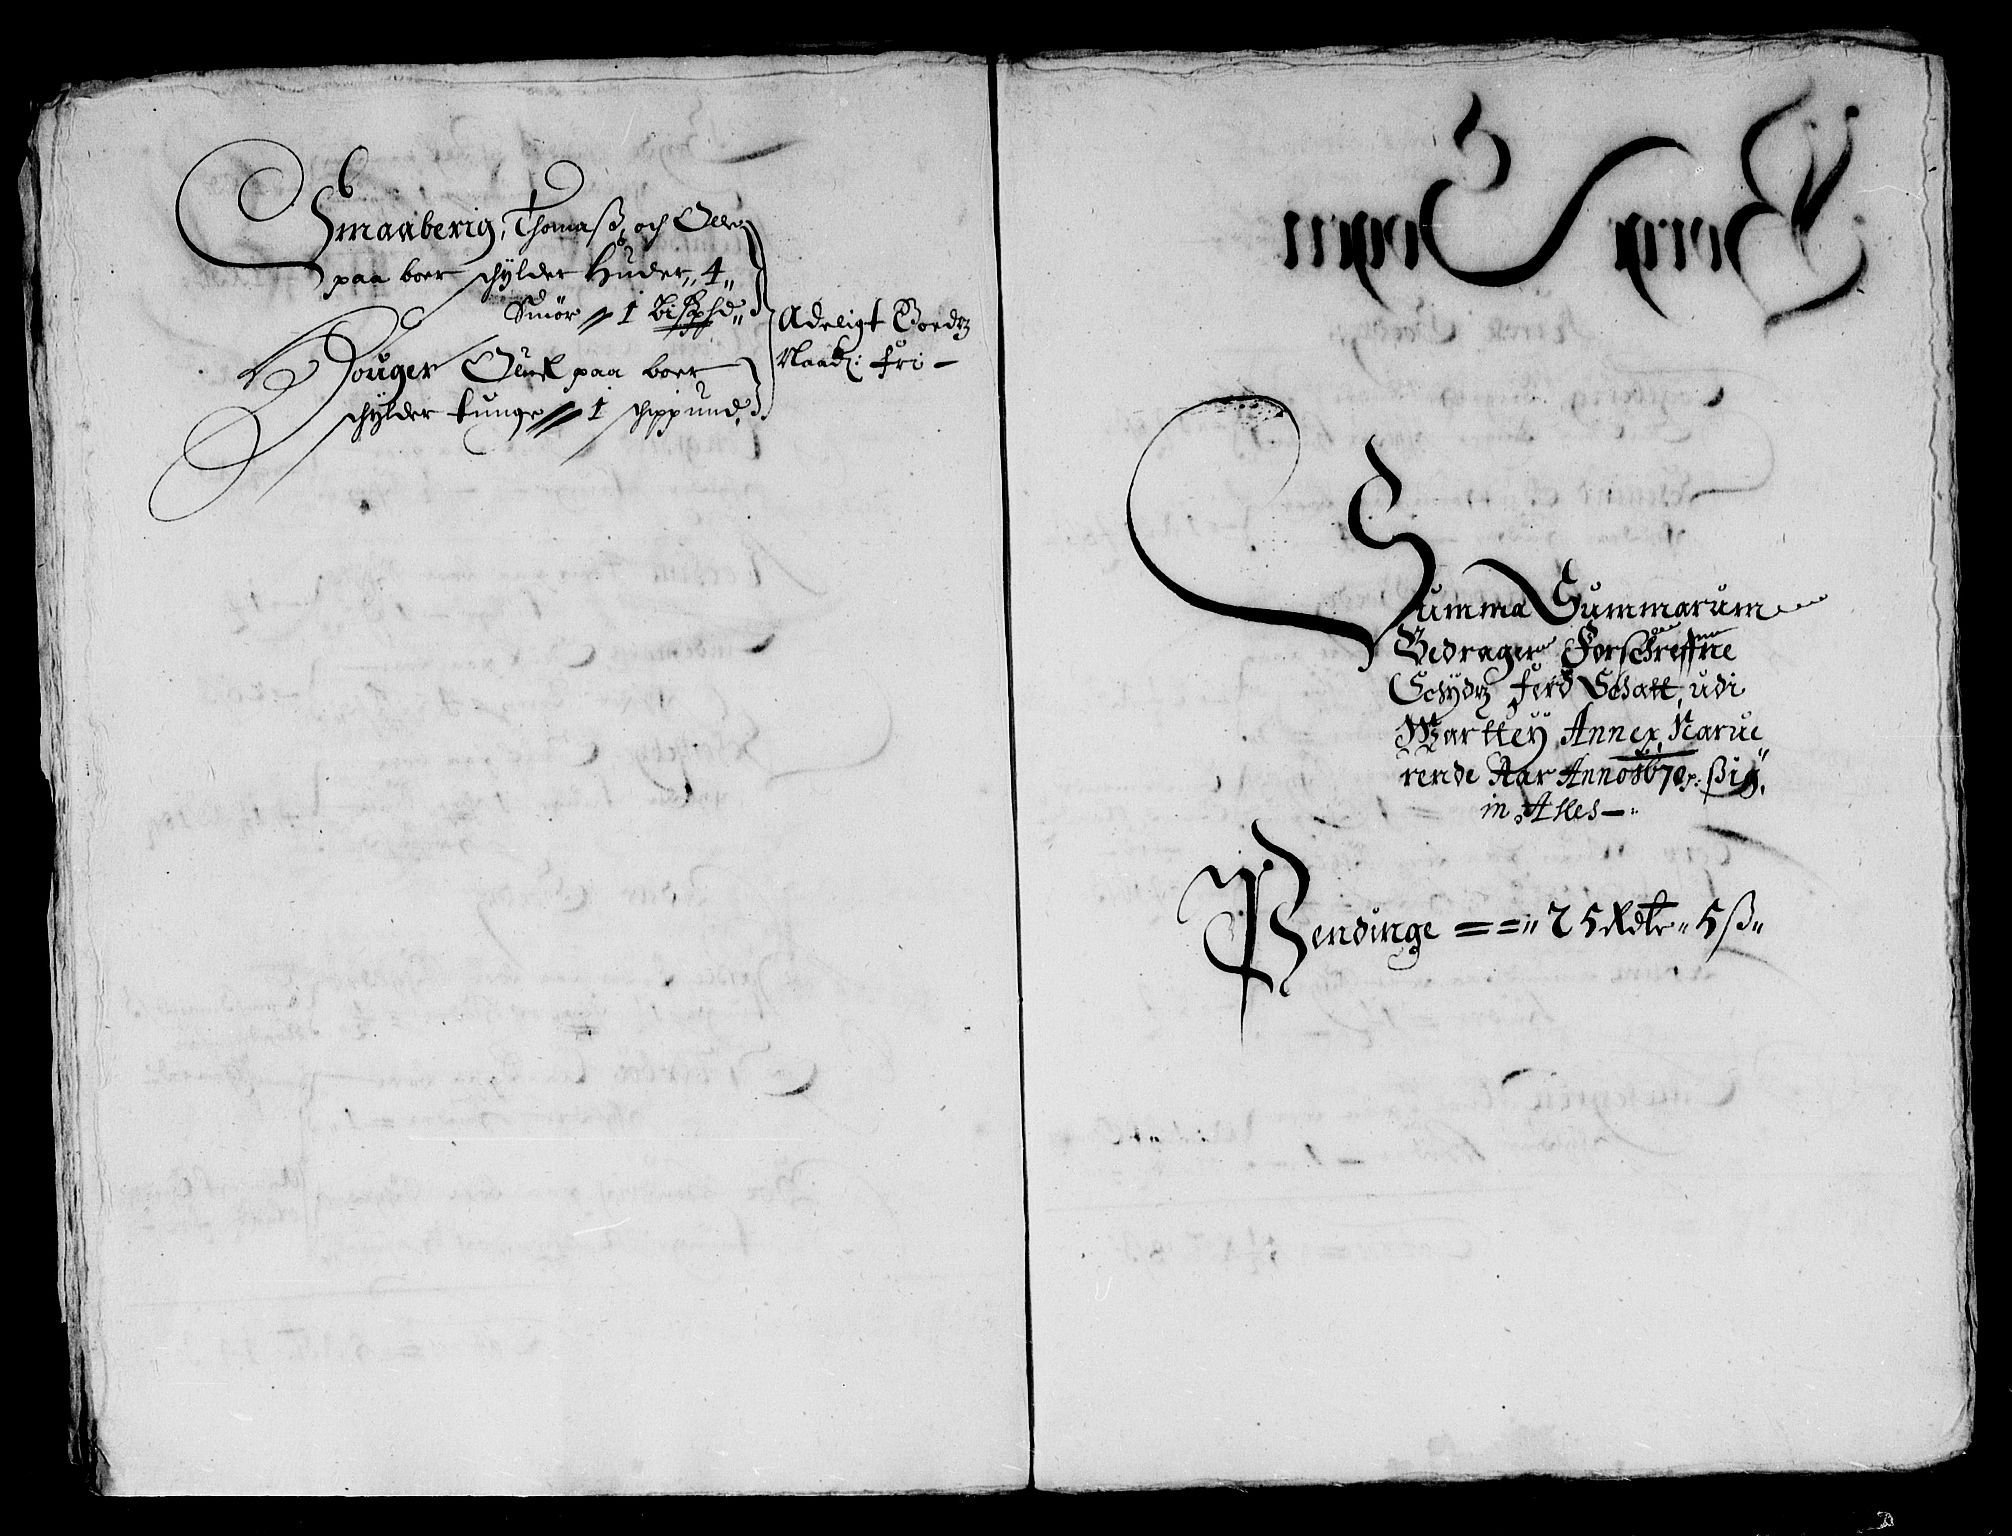 Smaaberig, Thomaß, och Oller
paa boer schylder Huder,, 4,,
Smör 1 Bißpd,,
Houger Oluf paa boer
schylder tunge 1 schippund,
Adeligt Goedtz
Naad: fri —
Summa Summarum
Bedrager Forschreffne
Schydtz ferd Schatt, udi
Marttey Annex, Narue
rende Aar Anno 1670, sig,
in Alles —
Pendinge == ,, 25 Rdlr ,, 5 ß ,,